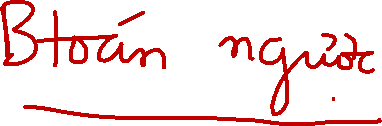 Btoán ngược